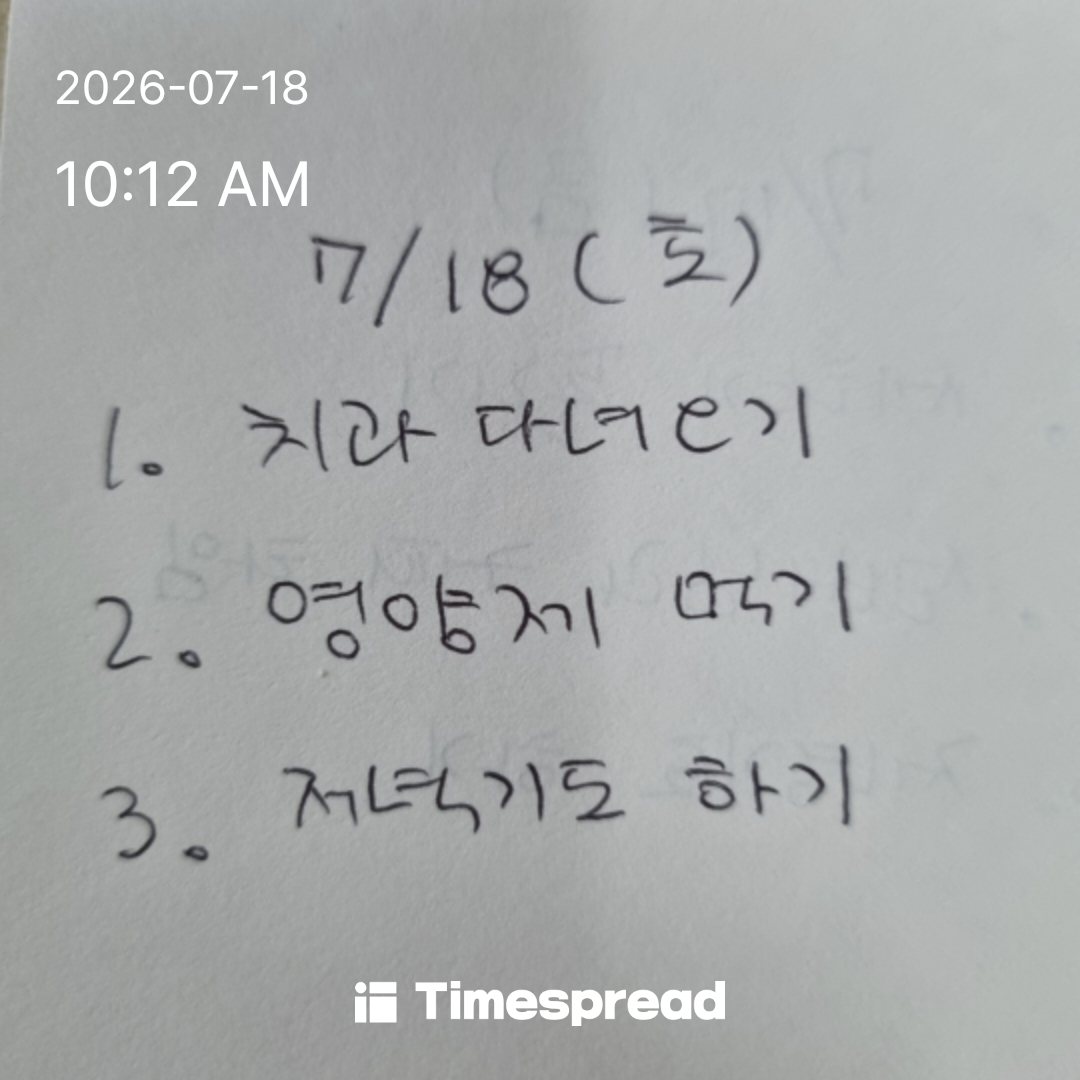 2026-07-18
10:12 AM
7/18 (토)
1. 치과 다녀오기
2. 영양제 먹기
3. 저녁기도 하기
Timespread